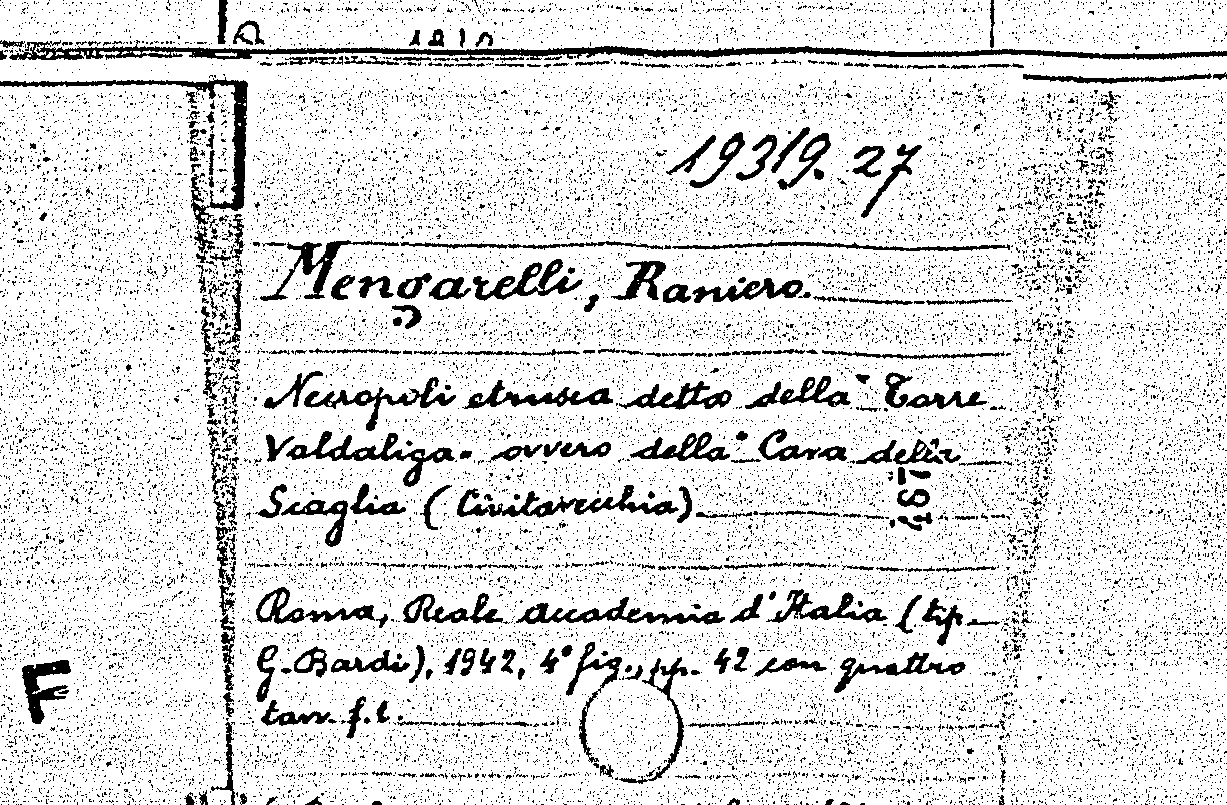 19319. 27
Mengarelli, Raniero.
Necropoli etrusca detta della "Torre
Valdaliga" ovvero della "Cava della
Scaglia (Civitavecchia).
Roma, Reale accademia d'Italia (tip.
G. Bardi), 1942, 4° fig., pp. 42 con quattro
tav. f.t.
F